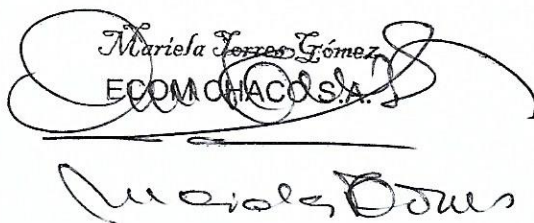 Mariela Torres Gómez
ECOM CHACO S.A.
Mariela Torres